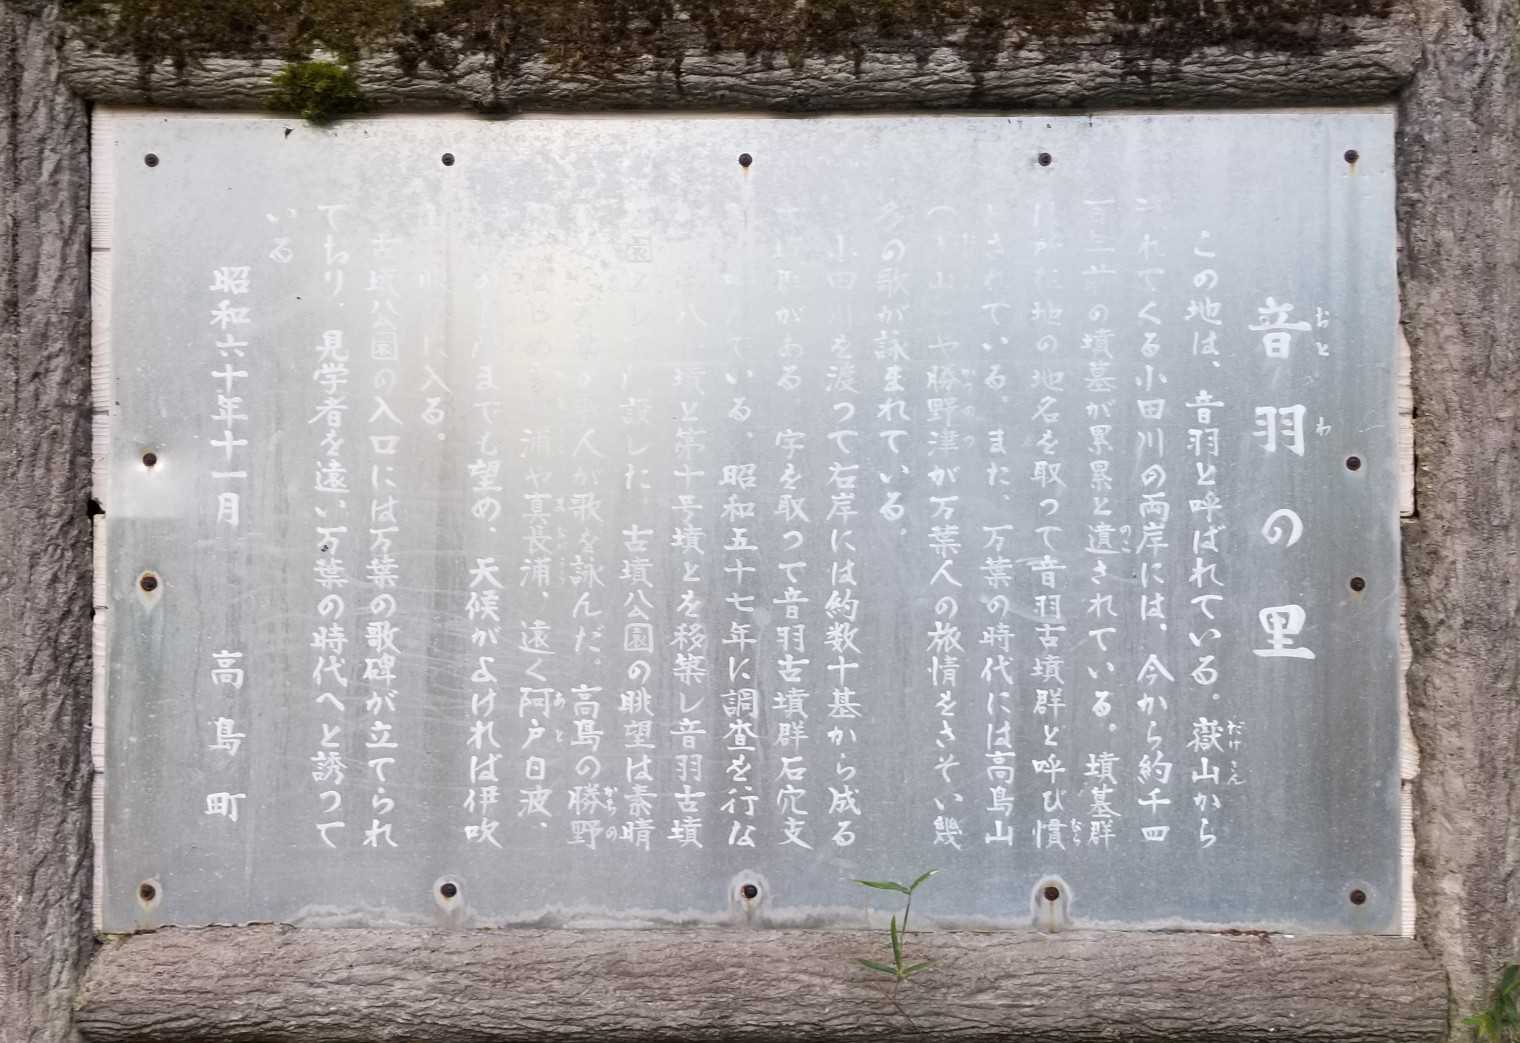 音羽の里
おとわ
この地は、音羽と呼ばれている。嶽山から
だけさん
れてくる小田川の両岸には、今から約千四
百年前の墳墓が累累と遺されている。墳墓群
のこ
地の地名を取って音羽古墳群と呼び慣
なら
されている。また、万葉の時代には高島山
山や勝野津が万葉人の旅情をさそい幾
かつのつ
の歌が詠まれている。
小田川を渡って右岸には約数十基から成る
がある。字を取って音羽古墳群石穴支
ている、昭和五十七年に調査を行な
八 墳と第十号墳とを移築し音羽古墳
園 設した。古墳公園の眺望は素晴
人が歌を詠んだ。高島の勝野
かちの
浦や真長浦、遠く阿戸白波、
あと
までも望め、天候がよければ伊吹
に入る。
古墳公園の入口には万葉の歌碑が立てられ
ており、見学者を遠い万葉の時代へと誘って
いる
昭和六十年十一月 高島町